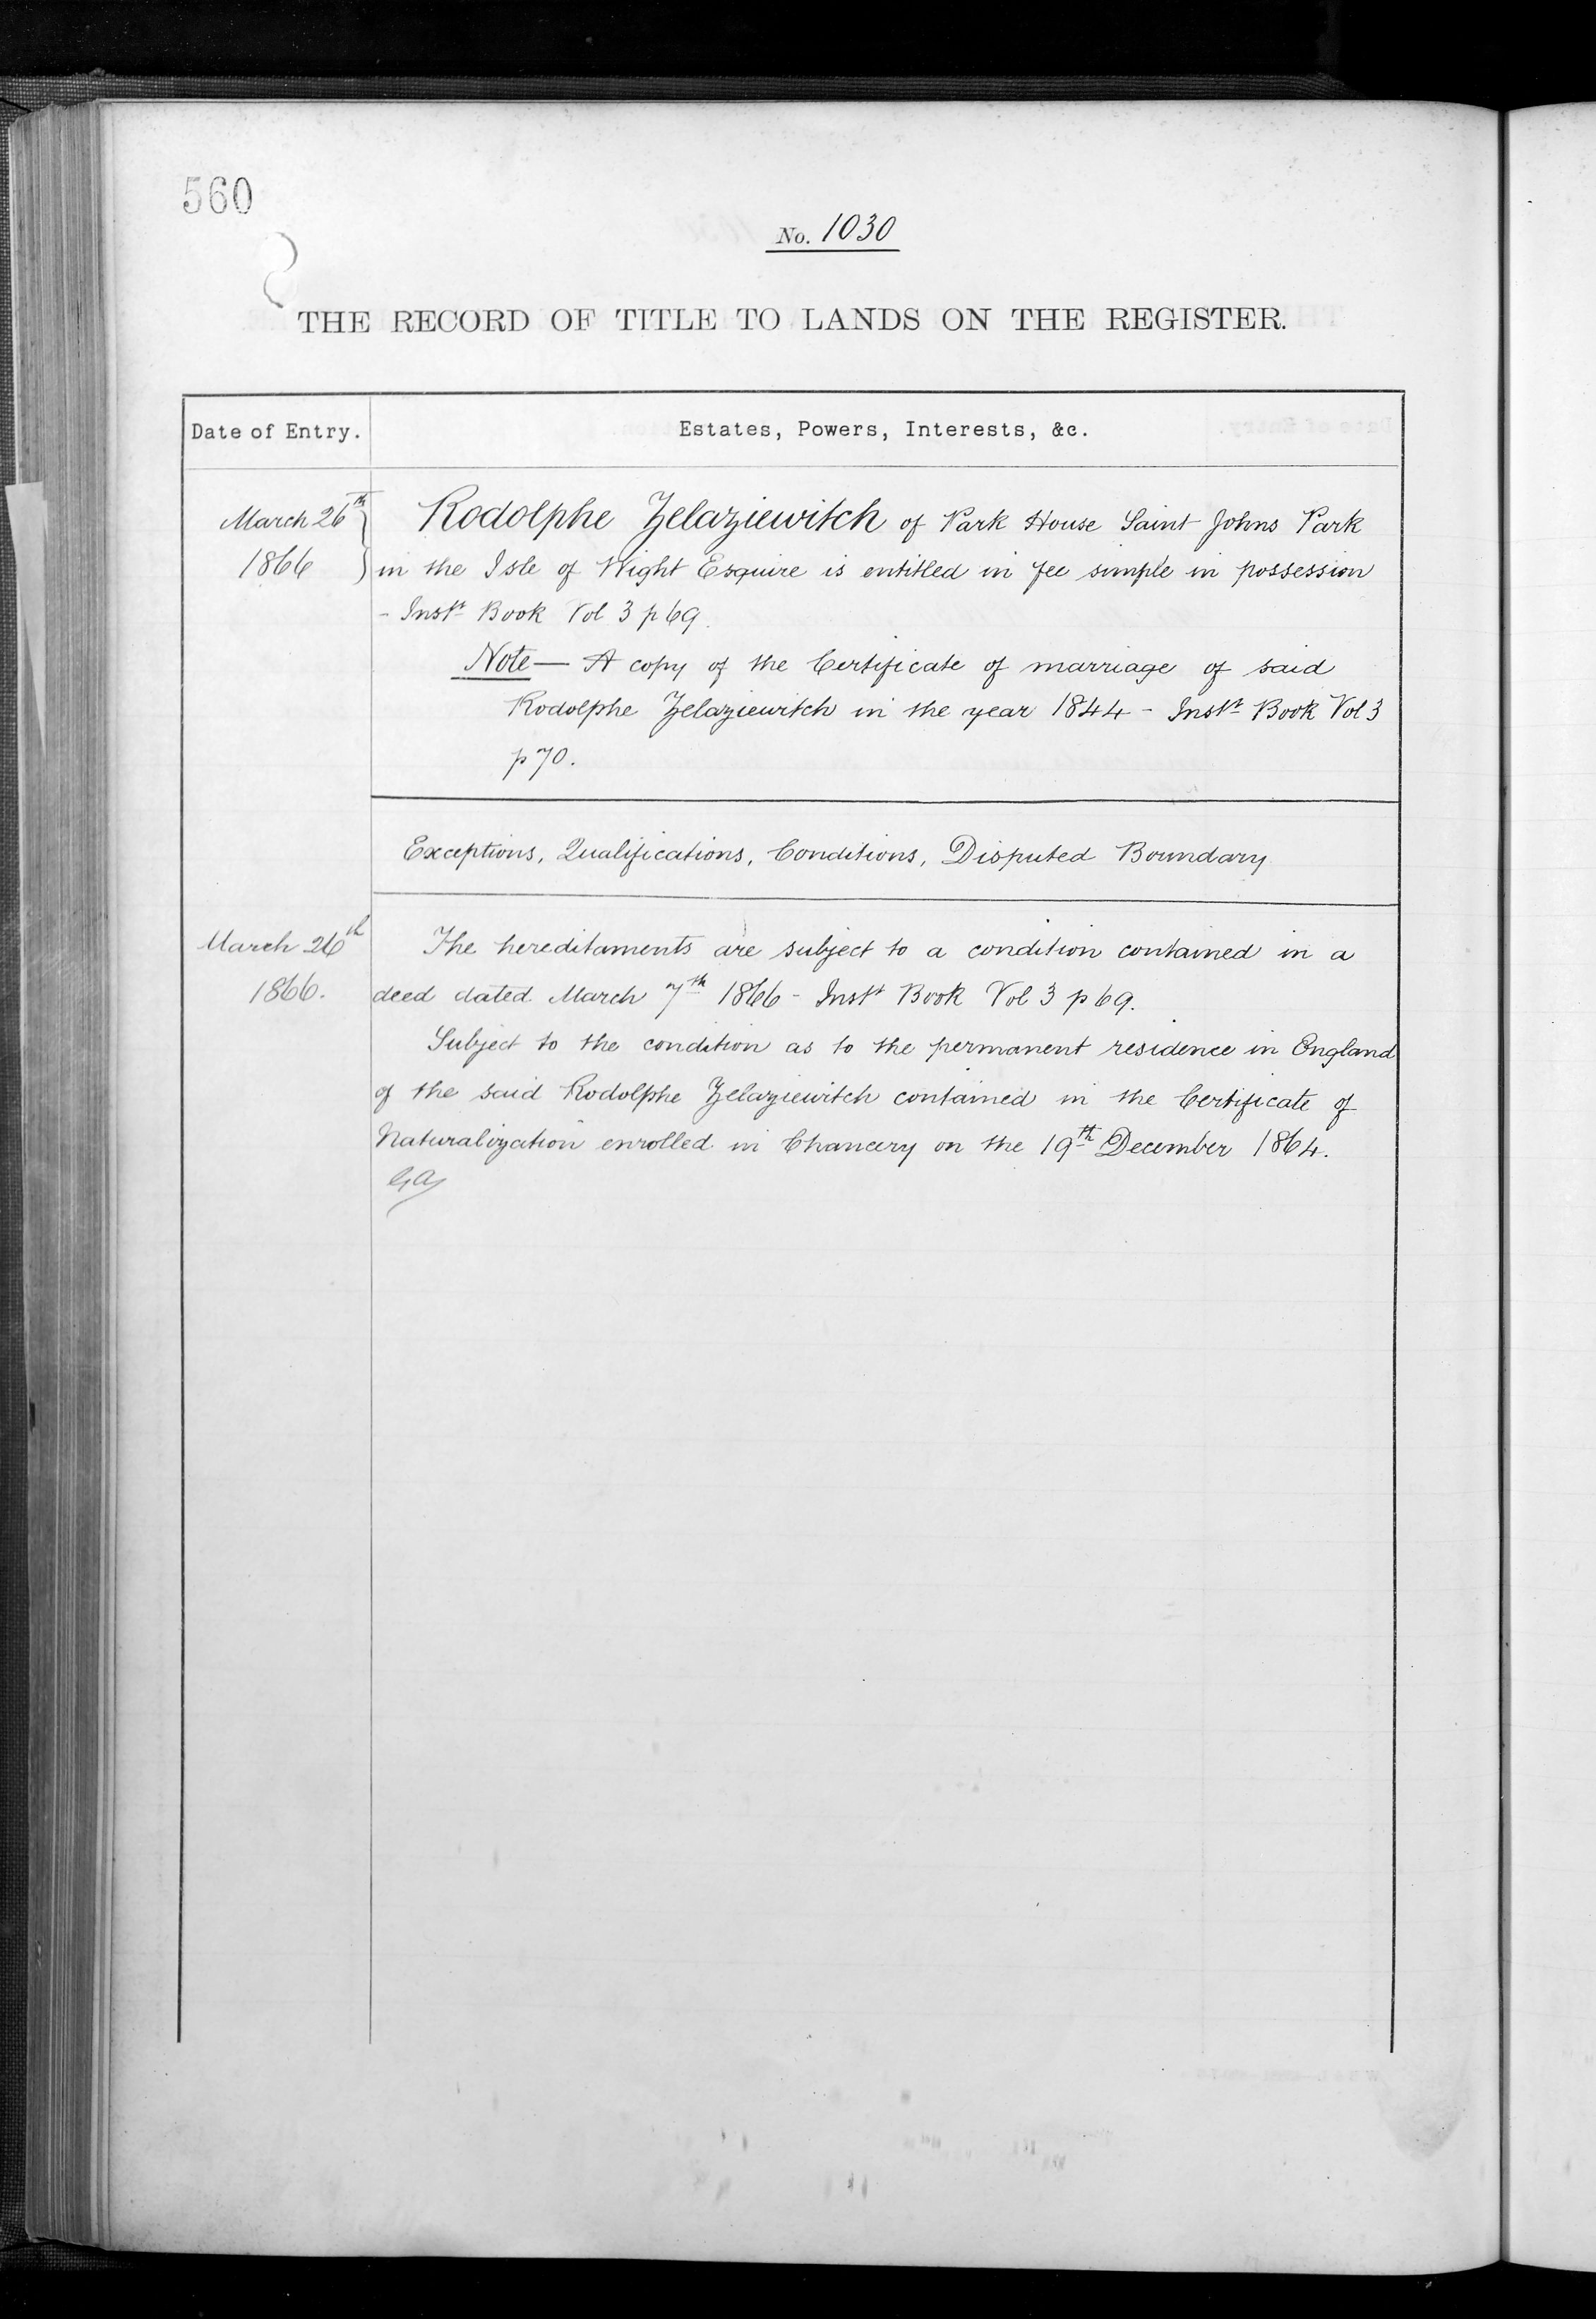 560
No. 1030
THE RECORD OF TITLE TO LANDS ON THE REGISTER.
Date of Entry.
Estates, Powers, Interests, &c.
March 26th
1866
Rodolphe Zelaziewitch of Park House Saint Johns Park
in the Isle of Wight Esquire is entitled in fee simple in possession
- Instt Book Vol 3 p 69.
Note — A copy of the Certificate of marriage of said
Rodolphe Zelaziewitch in the year 1844 - Instt Book Vol 3
p 70.
Exceptions, Qualifications, Conditions, Disputed Boundary
March 26th
1866.
The hereditaments are subject to a condition contained in a
deed dated March 7th 1866 - Instt Book Vol 3 p 69.
Subject to the condition as to the permanent residence in England
of the said Rodolphe Zelaziewitch contained in the Certificate of
Naturalization enrolled in Chancery on the 19th December 1864.